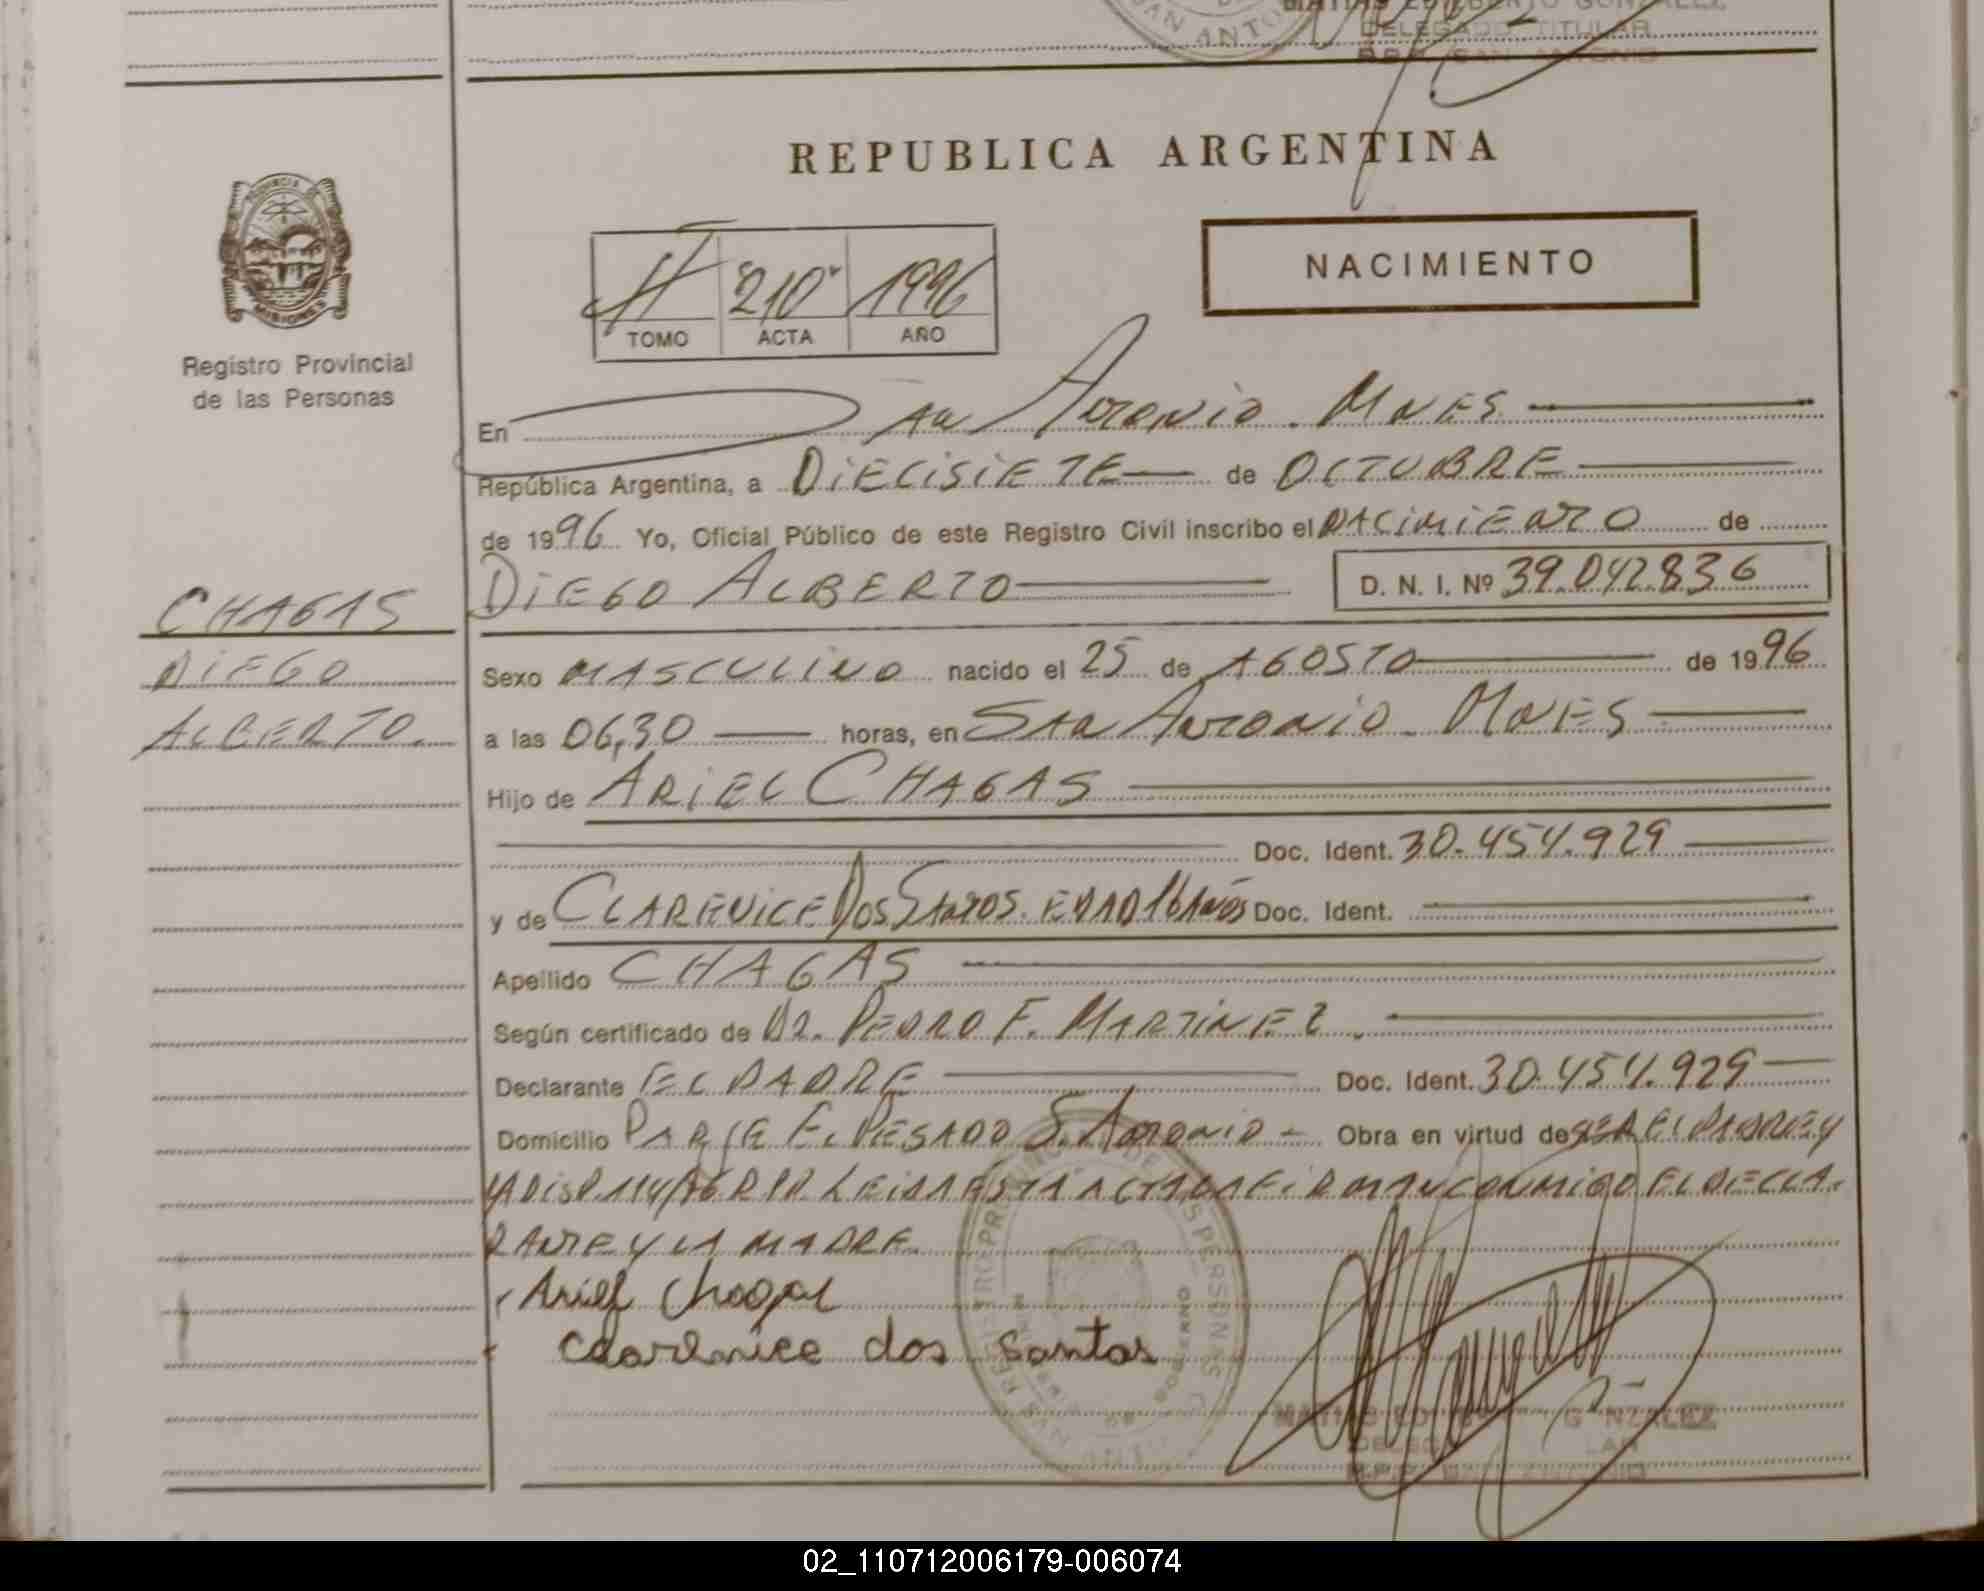 SAN ANTO
MATIAS EDILBERTO GONZALEZ
DELEGADO TITULAR
R.P.P. SAN ANTONIO
REPUBLICA ARGENTINA
PROVINCIA DE
MISIONES
Registro Provincial
de las Personas
II 210 1996
TOMO ACTA AÑO
NACIMIENTO
En San Antonio. Mnes
República Argentina, a DIECISIETE de OCTUBRE
de 1996 Yo, Oficial Público de este Registro Civil inscribo el NACIMIENTO de
CHAGAS
DIEGO
ALBERTO.
DIEGO ALBERTO D. N. I. Nº 39.042.836
Sexo MASCULINO nacido el 25 de AGOSTO de 1996
a las 06,30 horas, en SAN ANTONIO. MNES
Hijo de ARIEL CHAGAS
Doc. Ident. 30.454.929
y de CLARENICE DOS SANTOS. EDAD 16 AÑOS Doc. Ident.
Apellido CHAGAS
Según certificado de DR. PEDRO F. MARTINEZ.
Declarante EL PADRE Doc. Ident. 30.454.929
Domicilio PARJE EL PESADO S. ANTONIO - Obra en virtud de SER EL PADRE Y
LEIDA ESTA ACTA LA FIRMAN CONMIGO EL DECLA-
RANTE Y LA MADRE.
Ariel Chagas
Clarenice dos Santos
REGISTRO PROVINCIAL DE LAS PERSONAS
MATIAS EDILBERTO GONZALEZ
R.P.P. SAN ANTONIO
02_110712006179-006074